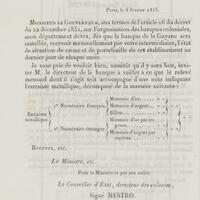 Paris, le 8 février 1855.
Monsieur le Gouverneur, aux termes de l'article 26 du décret
du 22 décembre 1851, sur l'organisation des banques coloniales,
mon département devra, dès que la banque de la Guyane sera
installée, recevoir mensuellement par votre intermédiaire, l'état
de situation de caisse et de portefeuille de cet établissement au
dernier jour de chaque mois.
Je vous prie de vouloir bien, aussitôt qu'il y aura lieu, inviter
M. le directeur de la banque à veiller à ce que le relevé
mensuel dont il s'agit soit accompagné d'une note indiquant
l'encaisse métallique, décomposé de la manière suivante :
Encaisse métallique
1° Numéraire français
Monnaie d'or
Monnaie d'argent
Billon
2° Numéraire étranger
Monnaie d'or par espèces
Monnaie d'argent par espèces
Recevez, etc.
Le Ministre, etc.
Pour le Ministre et par son ordre :
Le Conseiller d'État, directeur des colonies,
Signé MESTRO.